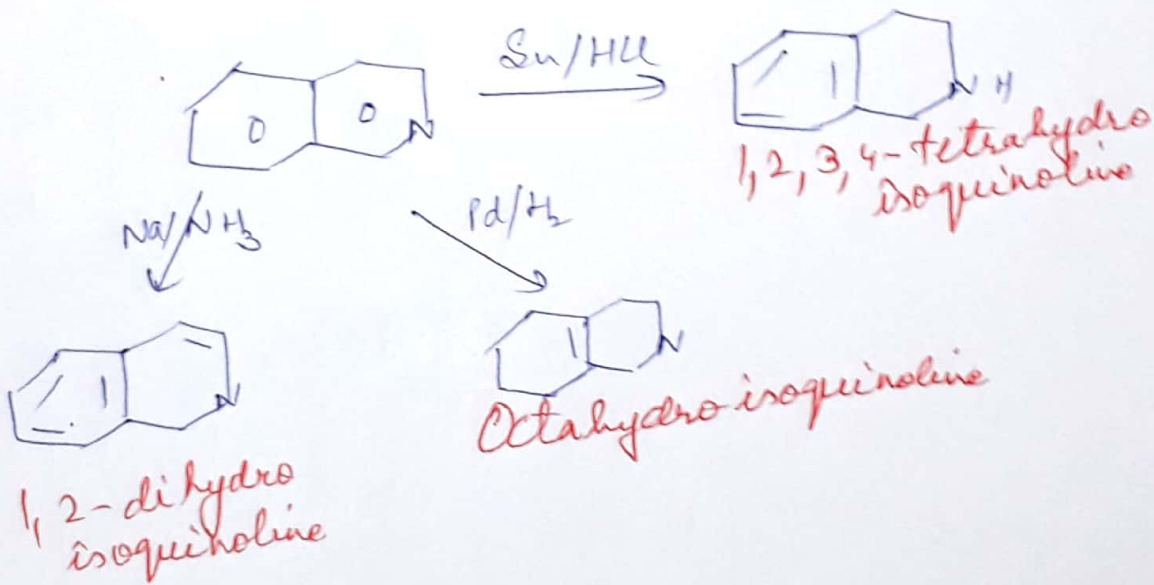 Sn/HCl
N
N H
1,2,3,4-tetrahydro
isoquinoline
Na/NH3
Pd/H2
N
N
Octahydro isoquinoline
1,2-dihydro
isoquinoline